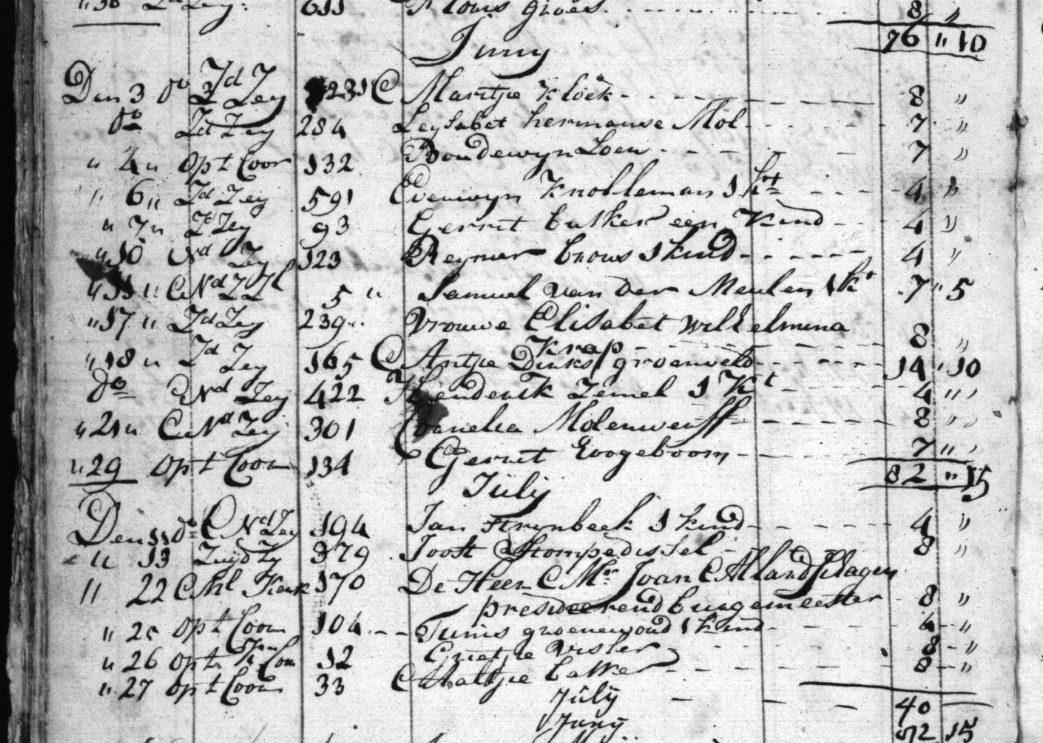 8 "
76 " 10
Juny
Den 3 do Zd Zy 231 Martje Klock 8 "
do Zd Zey 284 Leysabet hermanse Mol 7 "
" 4 " op t Coor 132 Boudewyn Loen 7 "
" 6 " Zd Zey 591 Everwyn Knobleman 1 kt 4 "
" 7 " Zd Zey 93 Gerrit bakker een Kind 4 "
" 10 Nd Zy 123 Reynier brows 1 kind 4 "
" 11 " Nd Z 5 " Samuel van der Meulen 1 kt 7 " 5
" 17 " Zd Zey 239 Vrouwe Elisabet Wilhelmina
Krap 8 "
" 18 " Zd Zey 165 Antje Dirks groenveld 14 " 10
do Nd Zey 422 Henderik Zemel 1 Kt 4 "
" 21 " Nd Zey 301 Cornelia Molenwerff 8 "
" 29 op t Coor 134 Gerrit hoogeboom 7 "
82 " 15
July
Den 11 do Nd Zey 194 Jan strynbeek 1 kind 4 "
" 13 Zuyd Zy 379 Joost Stompedissel 8 "
" 22 Kerk 170 De Heer Mr Joan
presideerend burgemeester 8 "
" 25 op t Coor 104 Tunis groenewoud 1 kind 4 "
" 26 op t Coor 12 Grietje Visser 8 "
" 27 op t Coor 33 Aaltje bakker 8 "
July 40
Juny 82 15